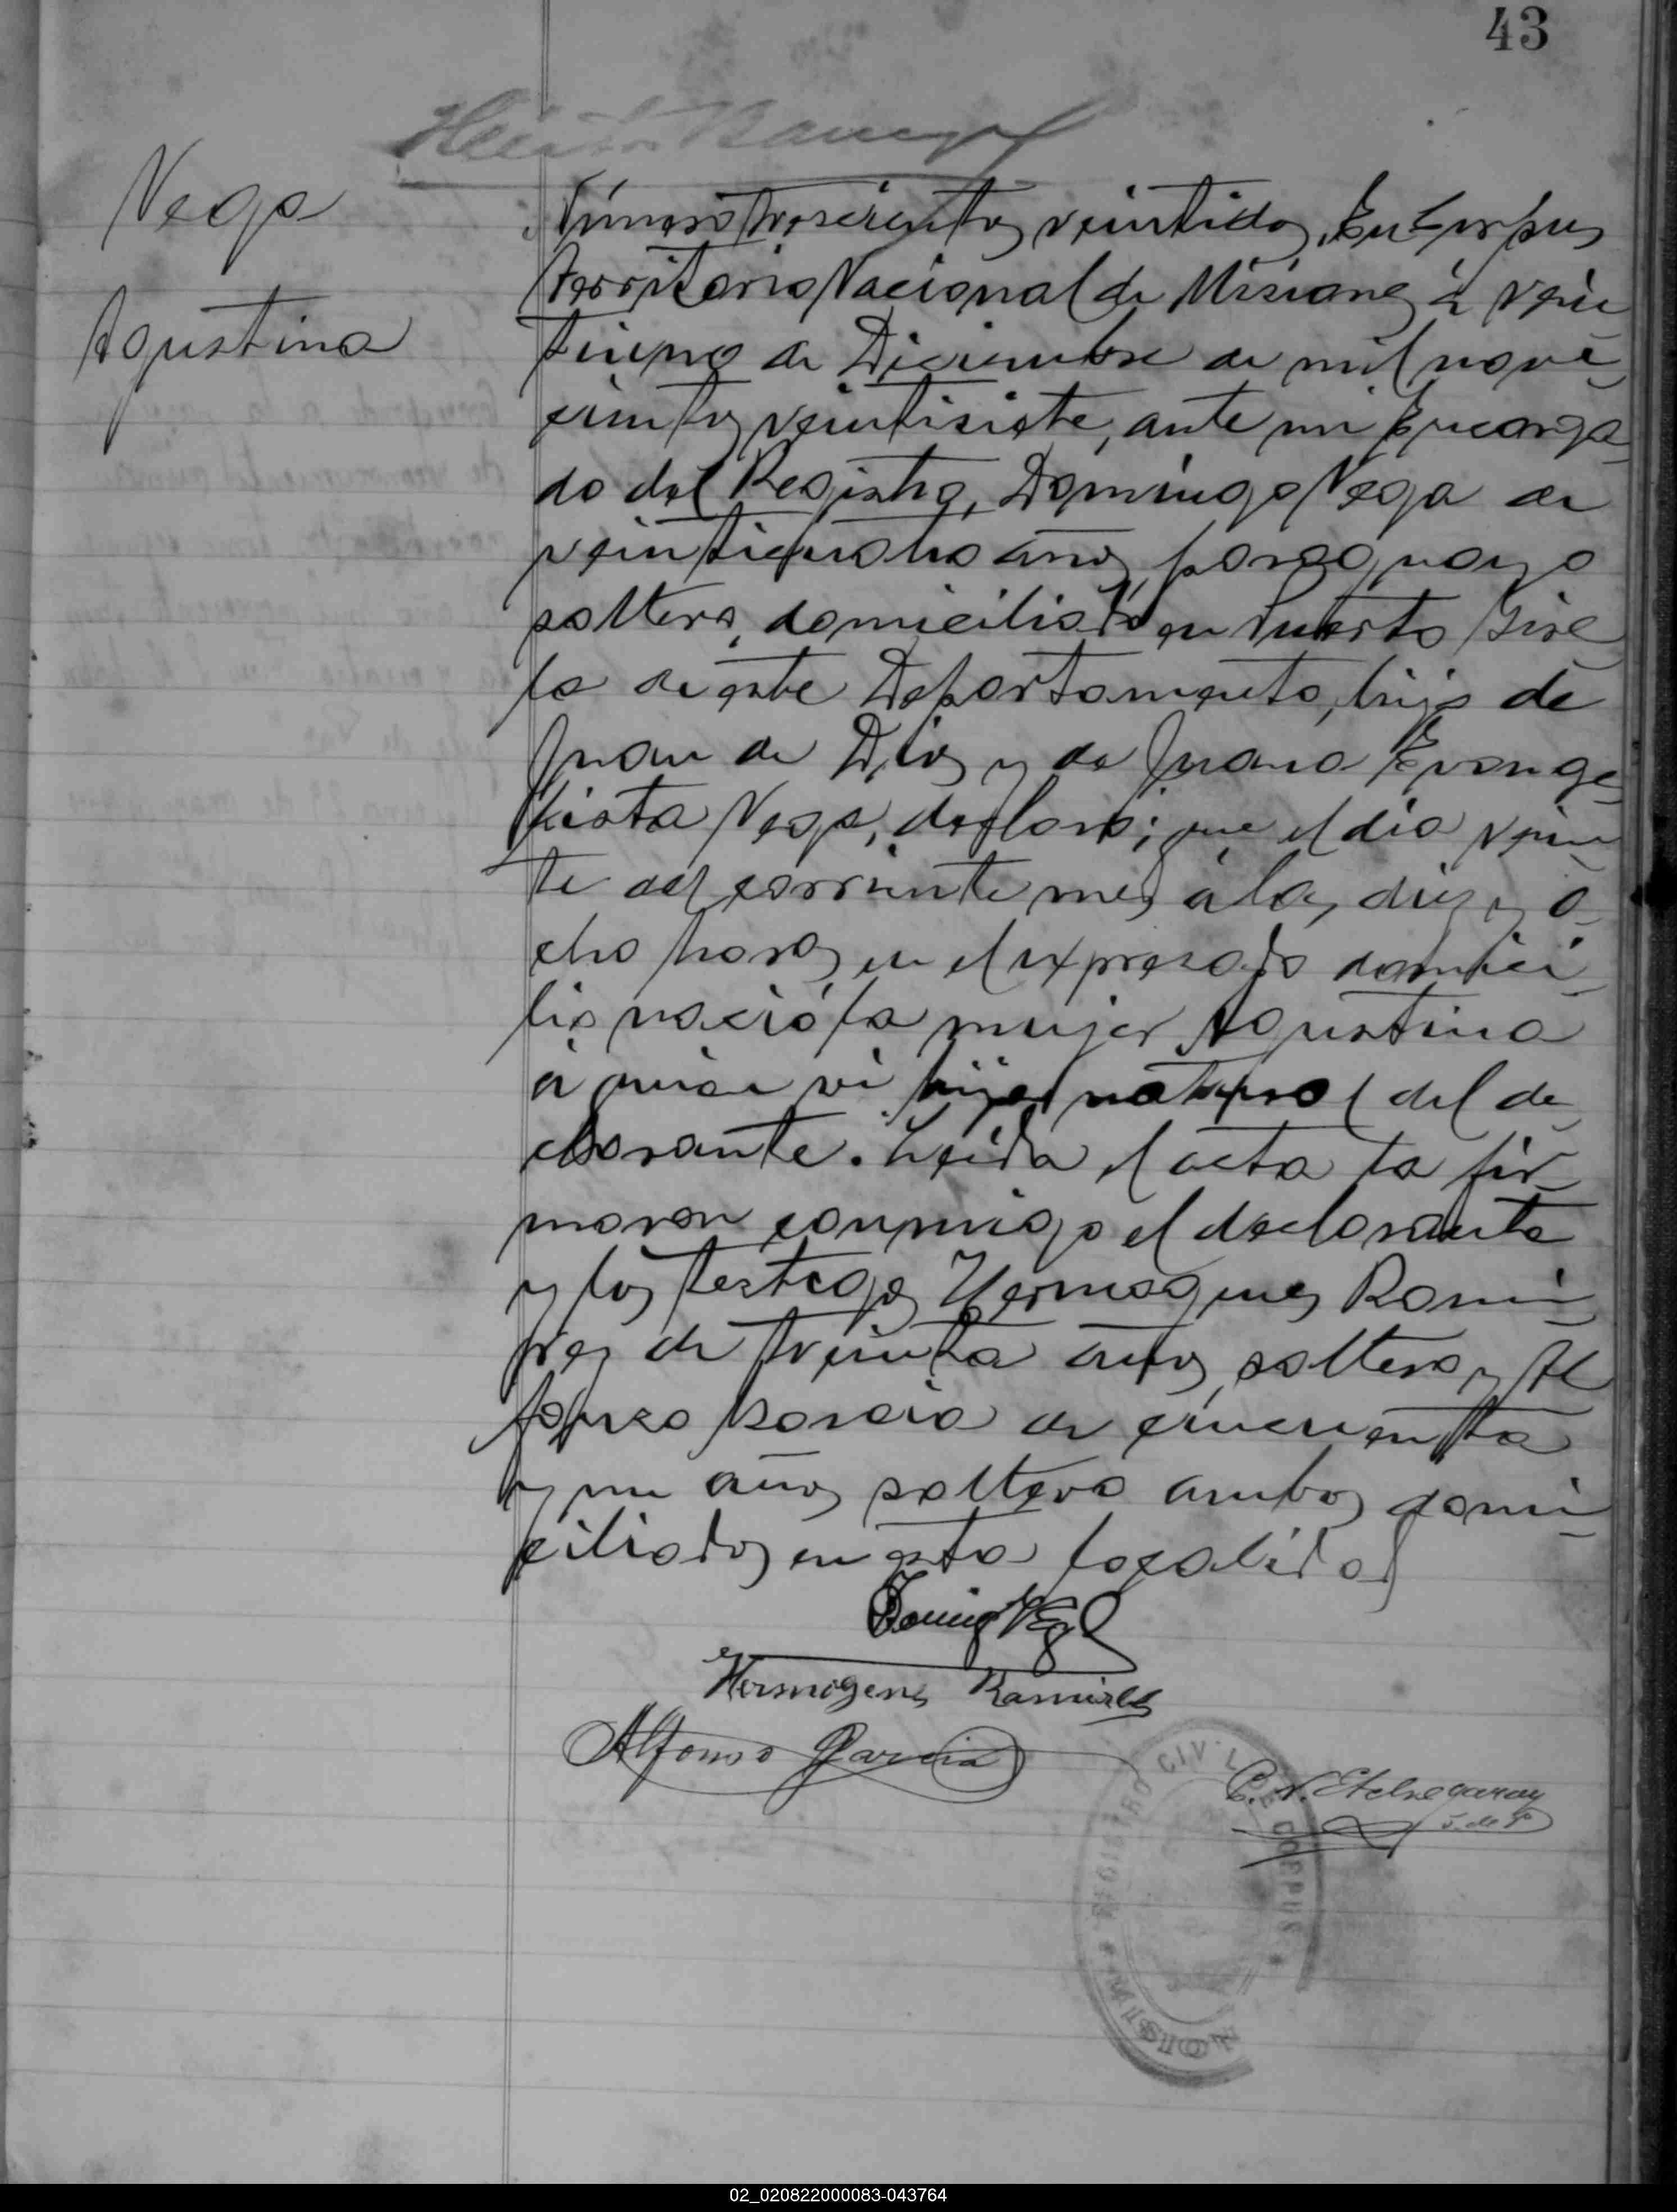 43
Vega
Agustina
Número trescientos veintidos, En Corpus
Territorio Nacional de Misiones á vein
tiuno de Diciembre de mil nove
cientos veintisiete, ante mi Encarga
do del Registro, Domingo Vega de
veinticuatro años, paraguayo
soltero, domiciliado en Puerto Gise
la de este Departamento, hijo de
Juan de Dios y de Juana Evange
lista Vega, declaró; que el dia vein
te del corriente mes á las diez y o
cho horas en el expresado domici
lio nació la mujer Agustina
á quien vi hija natural del de
clarante. Leida el acta la fir
maron conmigo el declarante
y los testigos Hermogenes Rami
rez de treinta años, soltero y Al
fonso Garcia de cincuenta
y un años soltero ambos domi
ciliados en esta localidad
Doming Vega
Hermogenes Ramirez
Alfonso Garcia
C. N. Etchegaray
J. de P
REGISTRO CIVIL DE CORPUS
MISIONES
02_020822000083-043764